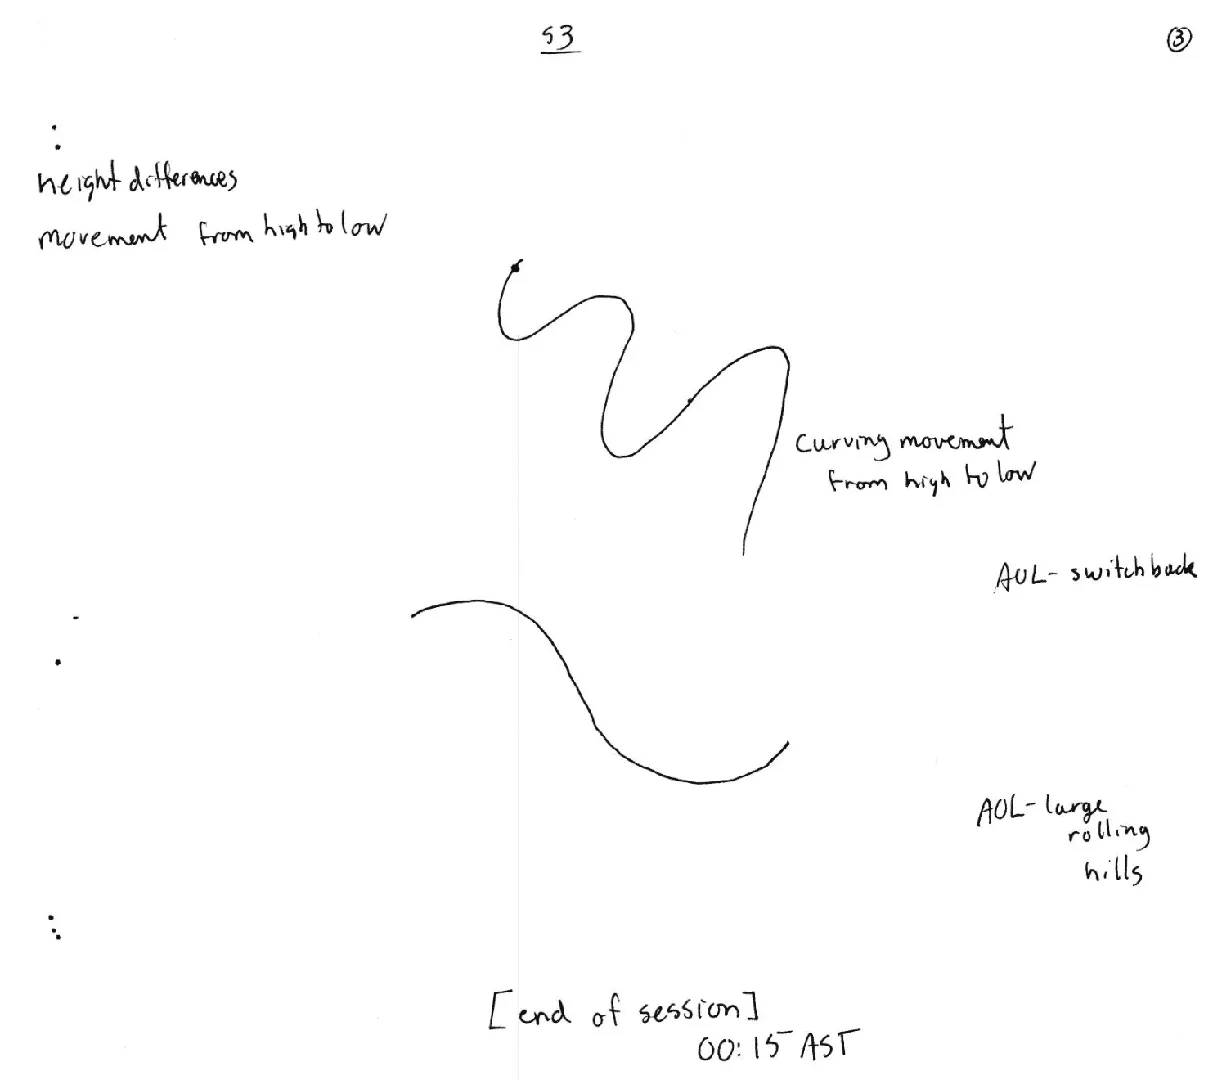 S3
3
height differences
movement from high to low
curving movement
from high to low
AOL- switchback
AOL- large
rolling
hills
[end of session]
00:15 AST